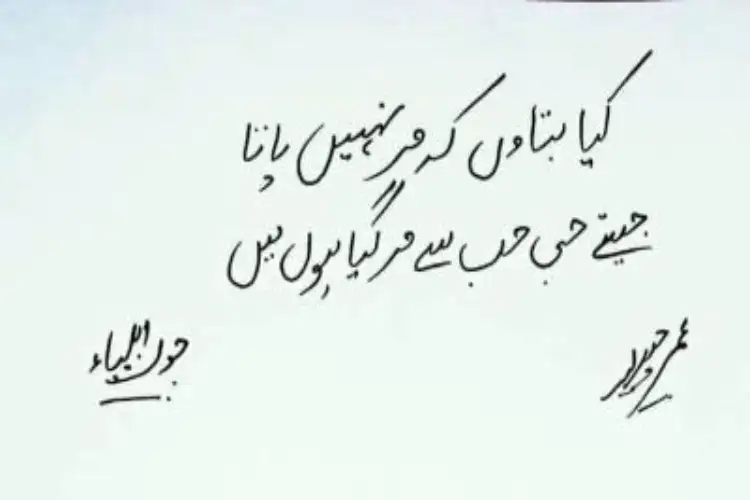 کیا بتاوں کہ مر نہیں پاتا
جیتے جی جب سے مر گیا ہوں میں
جون ایلیاء